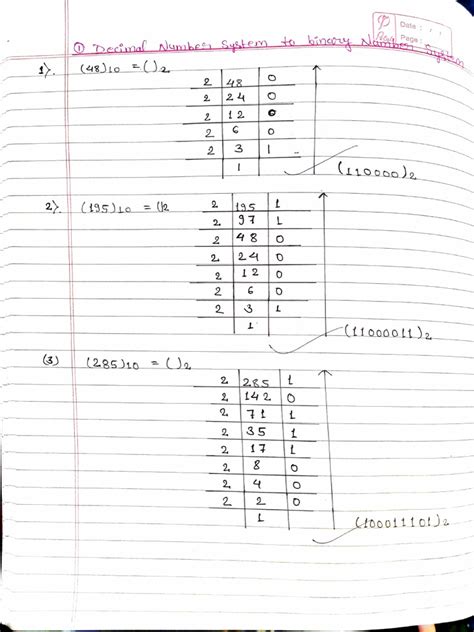 Date : / /
Page :
① Decimal Number System to binary Number System
1). (48)10 = ( )2
2 48 0
2 24 0
2 12 0
2 6 0
2 3 1
1
(110000)2
2). (195)10 = ( )2
2 195 1
2 97 1
2 48 0
2 24 0
2 12 0
2 6 0
2 3 1
1
(11000011)2
(3) (285)10 = ( )2
2 285 1
2 142 0
2 71 1
2 35 1
2 17 1
2 8 0
2 4 0
2 2 0
1
(100011101)2